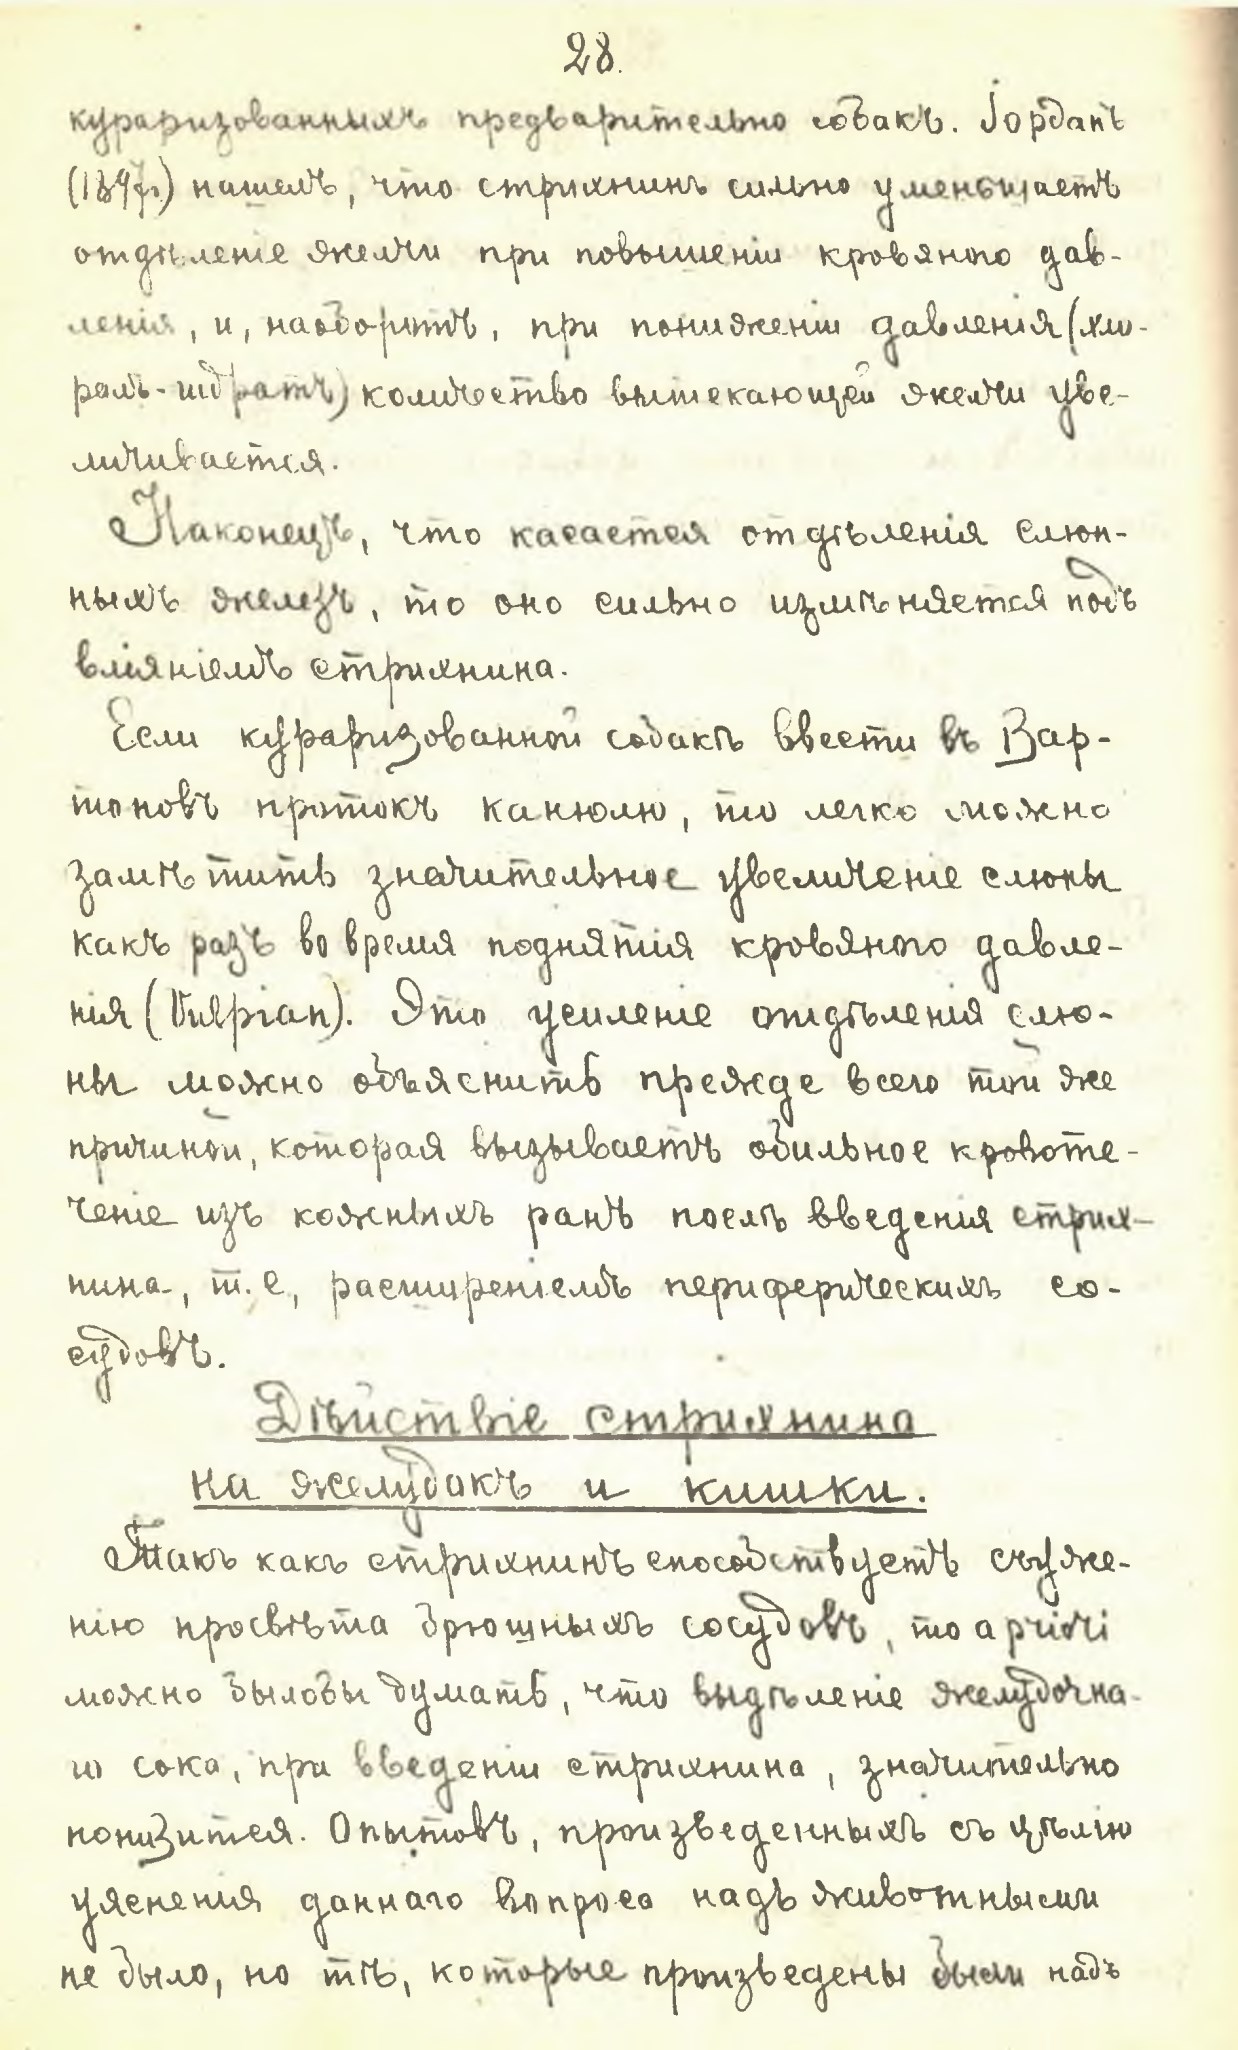 28.
кураризованныхъ предварительно собакъ. Іорданъ
(1897г.) нашелъ, что стрихнинъ сильно уменьшаетъ
отдѣленіе желчи при повышеніи кровяного дав-
ленія, и, наоборотъ, при пониженіи давленія (хло-
ралъ-гидратъ) количество вытекающей желчи уве-
личивается.
Наконецъ, что касается отдѣленія слюн-
ныхъ железъ, то оно сильно измѣняется подъ
вліяніемъ стрихнина.
Если кураризованной собакѣ ввести въ Вар-
тоновъ протокъ канюлю, то легко можно
замѣтить значительное увеличеніе слюны
какъ разъ во время поднятія кровяного давле-
нія (Vulpian). Это усиленіе отдѣленія слю-
ны можно объяснить прежде всего той же
причиной, которая вызываетъ обильное кровоте-
ченіе изъ кожныхъ ранъ послѣ введенія стрих-
нина, т. е, расширеніемъ периферическихъ со-
судовъ.
Дѣйствіе стрихнина
на желудокъ и кишки.
Такъ какъ стрихнинъ способствуетъ съуже-
нію просвѣта брюшныхъ сосудовъ, то a priori
можно былобы думать, что выдѣленіе желудочна-
го сока, при введеніи стрихнина, значительно
понизится. Опытовъ, произведенныхъ съ цѣлію
уясненія даннаго вопроса надъ животными
не было, но тѣ, которые произведены были надъ